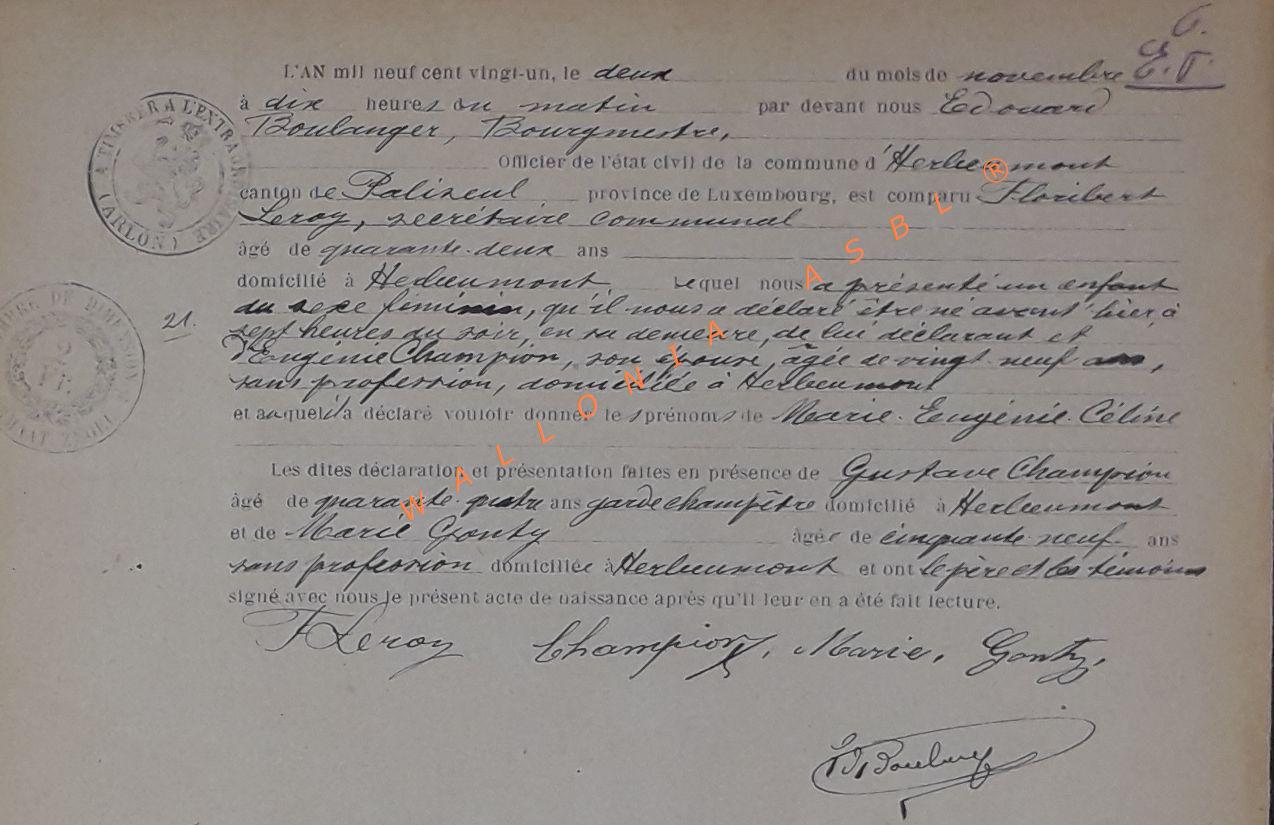 6.
E.T.
L'AN mil neuf cent vingt-un, le deux du mois de novembre
à dix heures du matin par devant nous Edouard
Boulanger, Bourgmestre,
Officier de l'état civil de la commune d'Herbeumont
canton de Paliseul province de Luxembourg, est comparu Floribert
Leroy, secrétaire communal
âgé de quarante-deux ans
domicilié à Herbeumont, Lequel nous a présenté un enfant
du sexe féminin, qu'il nous a déclaré être né avant hier, à
21. sept heures du soir, en sa demeure, de lui déclarant et
d'Eugénie Champion, son épouse, âgée de vingt neuf ans,
sans profession, domiciliée à Herbeumont
et auquel il a déclaré vouloir donner les prénoms de Marie-Eugénie-Céline
Les dites déclaration et présentation faites en présence de Gustave Champion
âgé de quarante-quatre ans garde champêtre domicilié à Herbeumont
et de Marie Gonty âgée de cinquante-neuf ans
sans profession domiciliée à Herbeumont et ont le père et les témoins
signé avec nous le présent acte de naissance après qu'il leur en a été fait lecture.
F Leroy Champion, Marie, Gonty,
Ed. Boulanger
A TIMBRER A L'EXTRAORDINAIRE
(ARLON)
WALLONIA ASBL ®